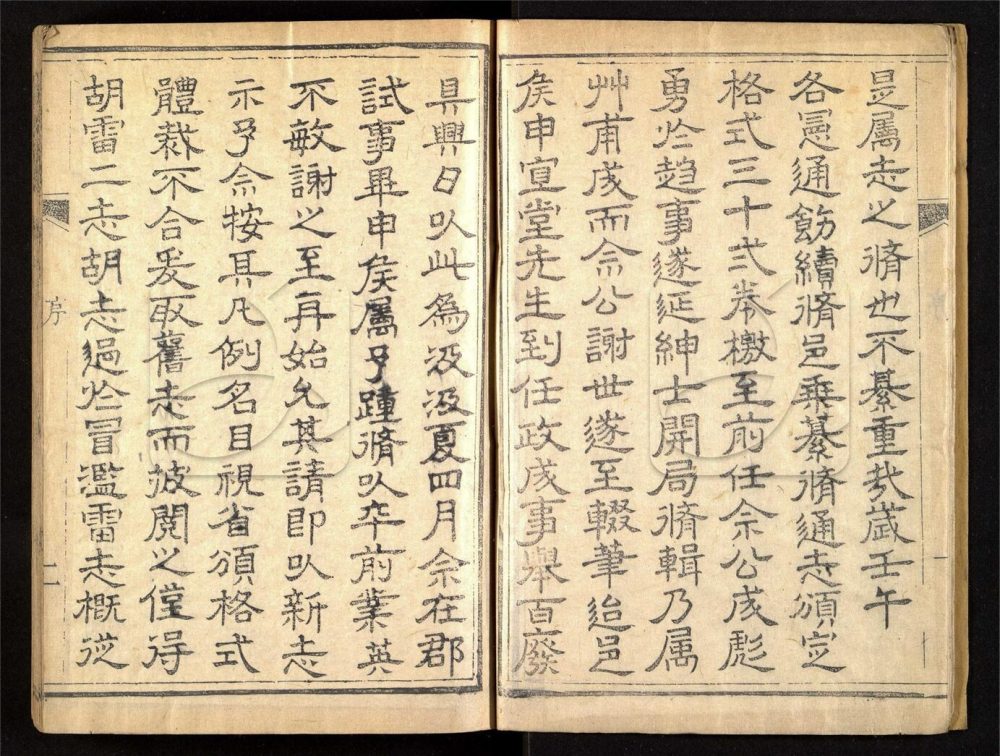 是屬志之脩也不綦重哉歲壬午
各憲通飭續脩邑乗纂脩通志頒定
格式三十弍卷檄至前任佘公成彪
勇於趨事遂延紳士開局脩輯乃属
艸甫成而佘公謝世遂至輟筆迨邑
矦申宣堂先生到任政成事舉百廢
具興日以此為汲汲夏四月佘在郡
試事畢申矦属予踵脩以卒前業英
不敏謝之至再始允其請即以新志
示予佘按其凡例名目視省頒格式
體裁不合爰取舊志而披閱之僅得
胡雷二志胡志過於冒濫雷志概從
序
二